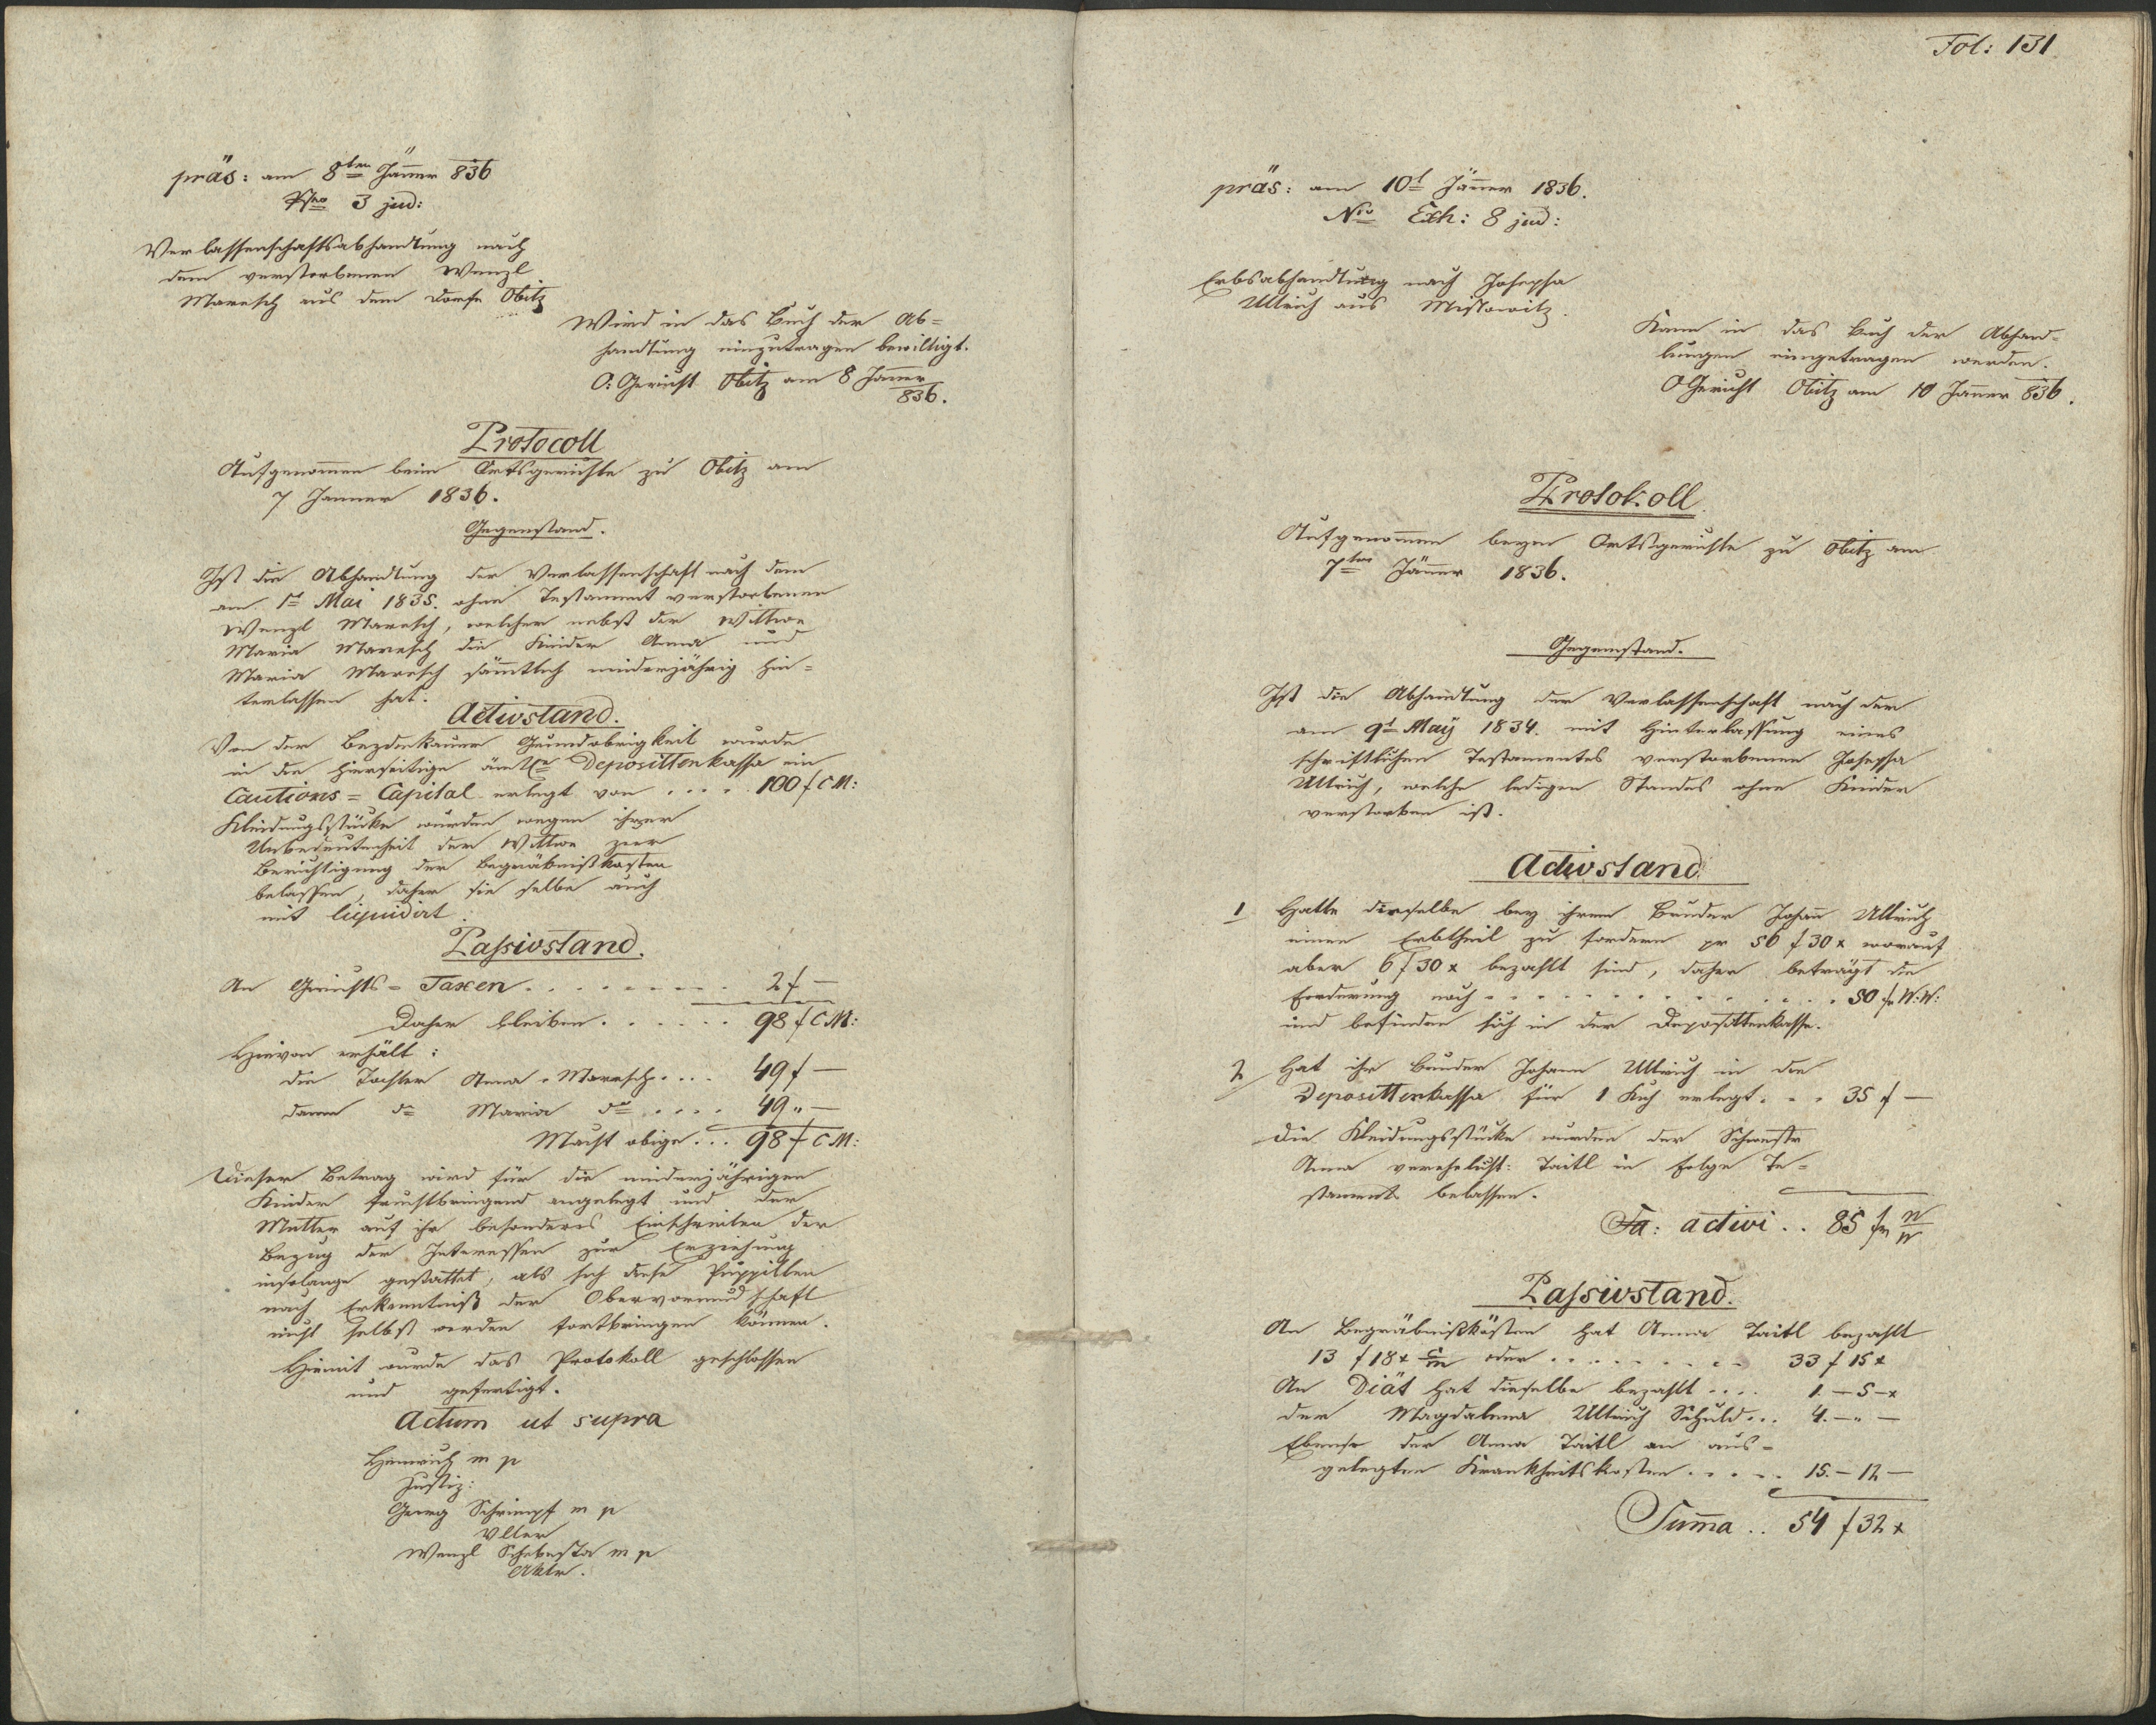 präs: am 8ten Jänner 836
Nro 3 jud:
Verlassenschaftsabhandlung nach
dem verstorbenen Wenzl
Maresch aus dem Dorfe Obitz
Wird in das Buch der Ab=
handlung einzutragen bewilligt.
O: Gericht Obitz am 8 Jänner
836.
Protocoll
Aufgenommen beim Ortsgerichte zu Obitz am
7 Janner 1836.
Gegenstand.
Ist die Abhandlung der Verlassenschaft nach dem
am 1t Mai 1835. ohne Testament verstorbenen
Wenzl Maresch, welcher nebst der Wittwe
Maria Maresch die Kinder Anna und
Maria Maresch sämtlich minderjährig hin=
terlassen hat.
Activstand.
Von der Bezdiekauer Grundobrigkeit wurde
in die hierseitige ämtl. Deposittenkassa ein
Cautions=Capital erlegt von .... 100 f C M:
Kleidungsstücke wurden wegen ihrer
Unbedeutenheit der Wittwe zur
Berichtigung der Begräbnißkosten
belassen, daher sie selbe auch
mit liquidirt.
Passivstand.
An Gerichts=Taxen ......... 2 f —
Daher bleiben ...... 98 f C M:
Hievon erhält:
die Tochter Anna Maresch .... 49 f —
dann dt Maria dto .... 49 " —
Macht obige ... 98 f C M:
Dieser Betrag wird für die minderjährigen
Kinder fruchtbringend angelegt und der
Mutter auf ihr besonderes Einschreiten der
Bezug der Interessen zur Erziehung
insolange gestattet, als sich diese Puppillen
nach Erkenntniß der Obervormundschaft
nicht selbst werden fortbringen können.
Hiemit wurde das Protokoll geschlossen
und gefertigt.
Actum ut supra
Heinrich m p
Justiz:
Georg Schrimpf m p
Wenzl Schebesta m p
Aktr.
Fol: 131
präs: am 10t Jänner 1836.
Nro Exh: 8 jud:
Erbsabhandlung nach Josepha
Ullrich aus Mislowitz.
Kann in das Buch der Abhand=
lungen eingetragen werden.
O Gericht Obitz am 10 Janner 836.
Protokoll
Aufgenommen beym Ortsgerichte zu Obitz am
7ten Jänner 1836.
Gegenstand.
Ist die Abhandlung der Verlassenschaft nach der
am 9t Maÿ 1834. mit Hinterlassung eines
schriftlichen Testamentes verstorbenen Josepha
Ullrich, welche ledigen Standes ohne Kinder
verstorben ist.
Activstand
1 Hatte dieselbe bey ihrem Bruder Johann Ullrich
einen Erbtheil zu fordern pr 56 f 30 x worauf
aber 6 f 30 x bezahlt sind, daher beträgt die
Forderung noch ........... 50 fr W: W:
und befinden sich in der Deposittenkasse.
2 Hat ihr Bruder Johann Ullrich in die
Deposittenkassa für 1 Kuh erlegt ... 35 f —
Die Kleidungsstücke wurden der Schwester
Anna verehelicht: Taitl in Folge Te=
staments belassen.
Sa: activi .. 85 fr W W
Passivstand.
An Begräbnißkösten hat Anna Taitl bezahlt
13 f 18 x C M oder ......... 33 f 15 x
An Diät hat dieselbe bezahlt .... 1. — 5 — x
der Magdalena Ullrich Schuld ... 4. — " —
Ebenso der Anna Taitl an aus=
gelegten Krankheitskosten ..... 15. — 12 —
Summa .. 54 f 32 x